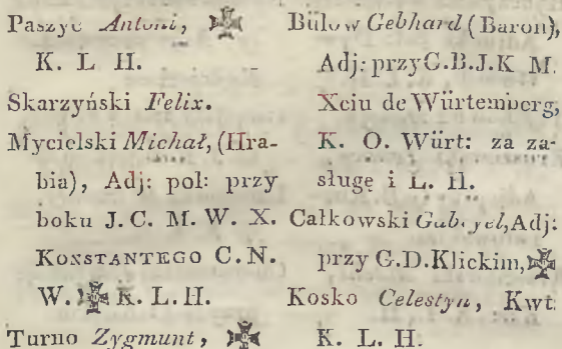 Paszyc Antoni, ✠
K. L. H.
Skarzyński Felix.
Mycielski Michał, (Hra-
bia), Adj: pol: przy
boku J. C. M. W. X.
KONSTANTEGO C. N.
W. ✠ K. L. H.
Turno Zygmunt, ✠
Bülow Gebhard (Baron),
Adj: przy G.B.J.K M.
Xciu de Würtemberg,
K. O. Würt: za za-
sługę i L. H.
Całkowski Gabryel, Adj:
przy G.D.Klickim, ✠
Kosko Celestyn, Kwt:
K. L. H.